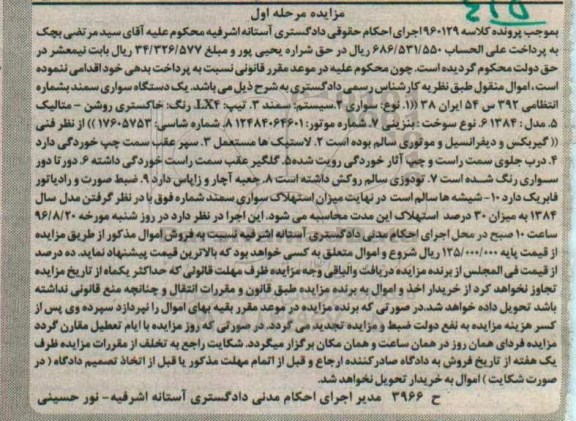 ۴۱۵
مزایده مرحله اول
بموجب پرونده کلاسه ۹۶۰۱۲۹ اجرای احکام حقوقی دادگستری آستانه اشرفیه محکوم علیه آقای سید مرتضی بچک
به پرداخت علی الحساب ۶۸۶/۵۳۱/۵۵۰ ریال در حق شراره یحیی پور و مبلغ ۳۴/۳۲۶/۵۷۷ ریال بابت نیمعشر در
حق دولت محکوم گردیده است. چون محکوم علیه در موعد مقرر قانونی نسبت به پرداخت بدهی خود اقدامی ننموده
است، اموال منقول طبق نظریه کارشناس رسمی دادگستری به شرح ذیل می باشد. یک دستگاه سواری سمند بشماره
انتظامی ۳۹۲ س ۵۴ ایران ۳۸ ((۱. نوع: سواری ۲.سیستم: سمند ۳. تیپ: LX۴. رنگ: خاکستری روشن - متالیک
۵. مدل: ۱۳۸۴ ۶. نوع سوخت: بنزینی ۷. شماره موتور: ۱۲۴۸۴۰۶۴۶۰۱ ۸. شماره شاسی: ۱۷۶۰۵۷۵۳ )) از نظر فنی
(( گیربکس و دیفرانسیل و موتوری سالم بوده است ۲. لاستیک ها مستعمل ۳. سپر عقب سمت چپ خوردگی دارد
۴. درب جلوی سمت راست و چپ آثار خوردگی رویت شده۵. گلگیر عقب سمت راست خوردگی داشته ۶. دور تا دور
سواری رنگ شده است ۷. تودوزی سالم روکش داشته است ۸. جعبه آچار و زاپاس دارد ۹. ضبط صورت و رادیاتور
فابریک دارد ۱۰- شیشه ها سالم است در نهایت میزان استهلاک سواری سمند شماره فوق با در نظر گرفتن مدل سال
۱۳۸۴ به میزان ۳۰ درصد استهلاک این مدت محاسبه می شود. این اجرا در نظر دارد در روز شنبه مورخه ۹۶/۸/۲۰
ساعت ۱۰ صبح در محل اجرای احکام مدنی دادگستری آستانه اشرفیه نسبت به فروش اموال مذکور از طریق مزایده
از قیمت پایه ۱۲۵/۰۰۰/۰۰۰ ریال شروع و اموال متعلق به کسی خواهد بود که بالاترین قیمت پیشنهاد نماید. ده درصد
از قیمت فی المجلس از برنده مزایده دریافت والباقی وجه مزایده ظرف مهلت قانونی که حداکثر یکماه از تاریخ مزایده
تجاوز نخواهد کرد از خریدار اخذ و اموال به برنده مزایده طبق قانون و مقررات انتقال و چنانچه منع قانونی نداشته
باشد تحویل داده خواهد شد.در صورتی که برنده مزایده در موعد مقرر بقیه بهای اموال را نپردازد سپرده وی پس از
کسر هزینه مزایده به نفع دولت ضبط و مزایده تجدید می گردد. در صورتی که روز مزایده با ایام تعطیل مقارن گردد
مزایده فردای همان روز در همان ساعت و همان مکان برگزار میگردد. شکایت راجع به تخلف از مقررات مزایده ظرف
یک هفته از تاریخ فروش به دادگاه صادرکننده ارجاع و قبل از اتمام مهلت مذکور یا قبل از اتخاذ تصمیم دادگاه ( در
صورت شکایت ) اموال به خریدار تحویل نخواهد شد.
ح ۳۹۶۶ مدیر اجرای احکام مدنی دادگستری آستانه اشرفیه- نور حسینی